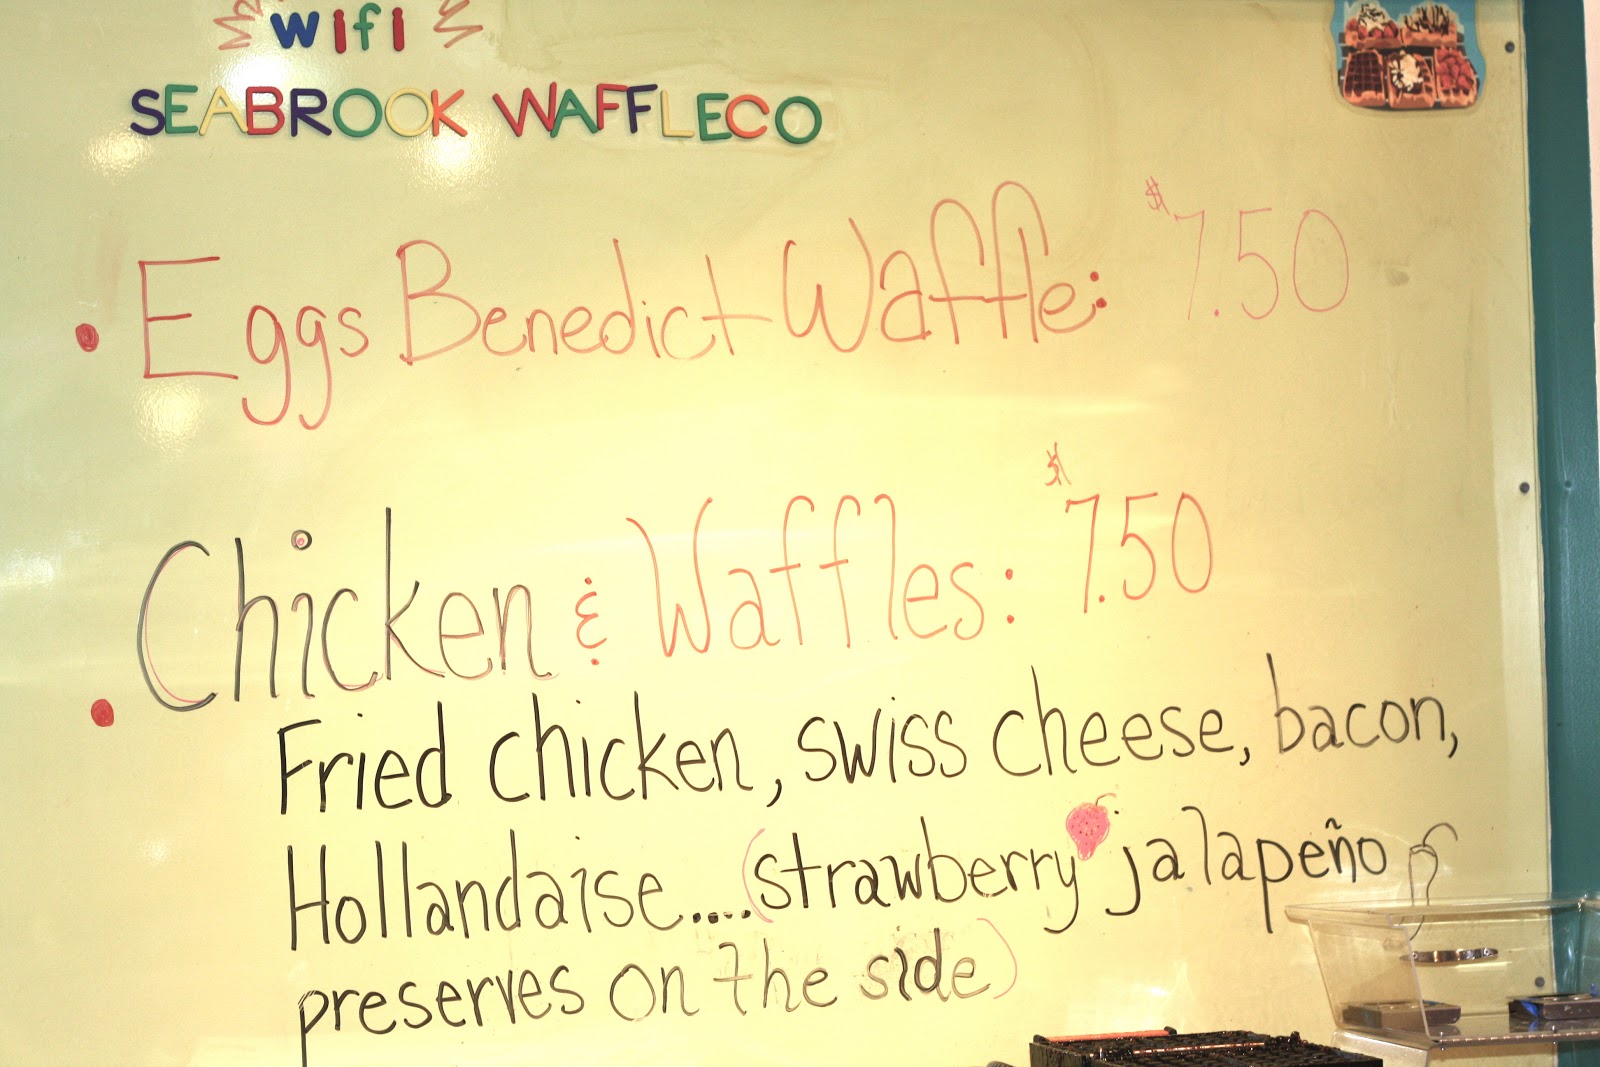 wifi
SEABROOK WAFFLECO
• Eggs Benedict Waffle: $7.50
• Chicken & Waffles: $7.50
Fried chicken, swiss cheese, bacon,
Hollandaise....(strawberry jalapeño
preserves on the side)